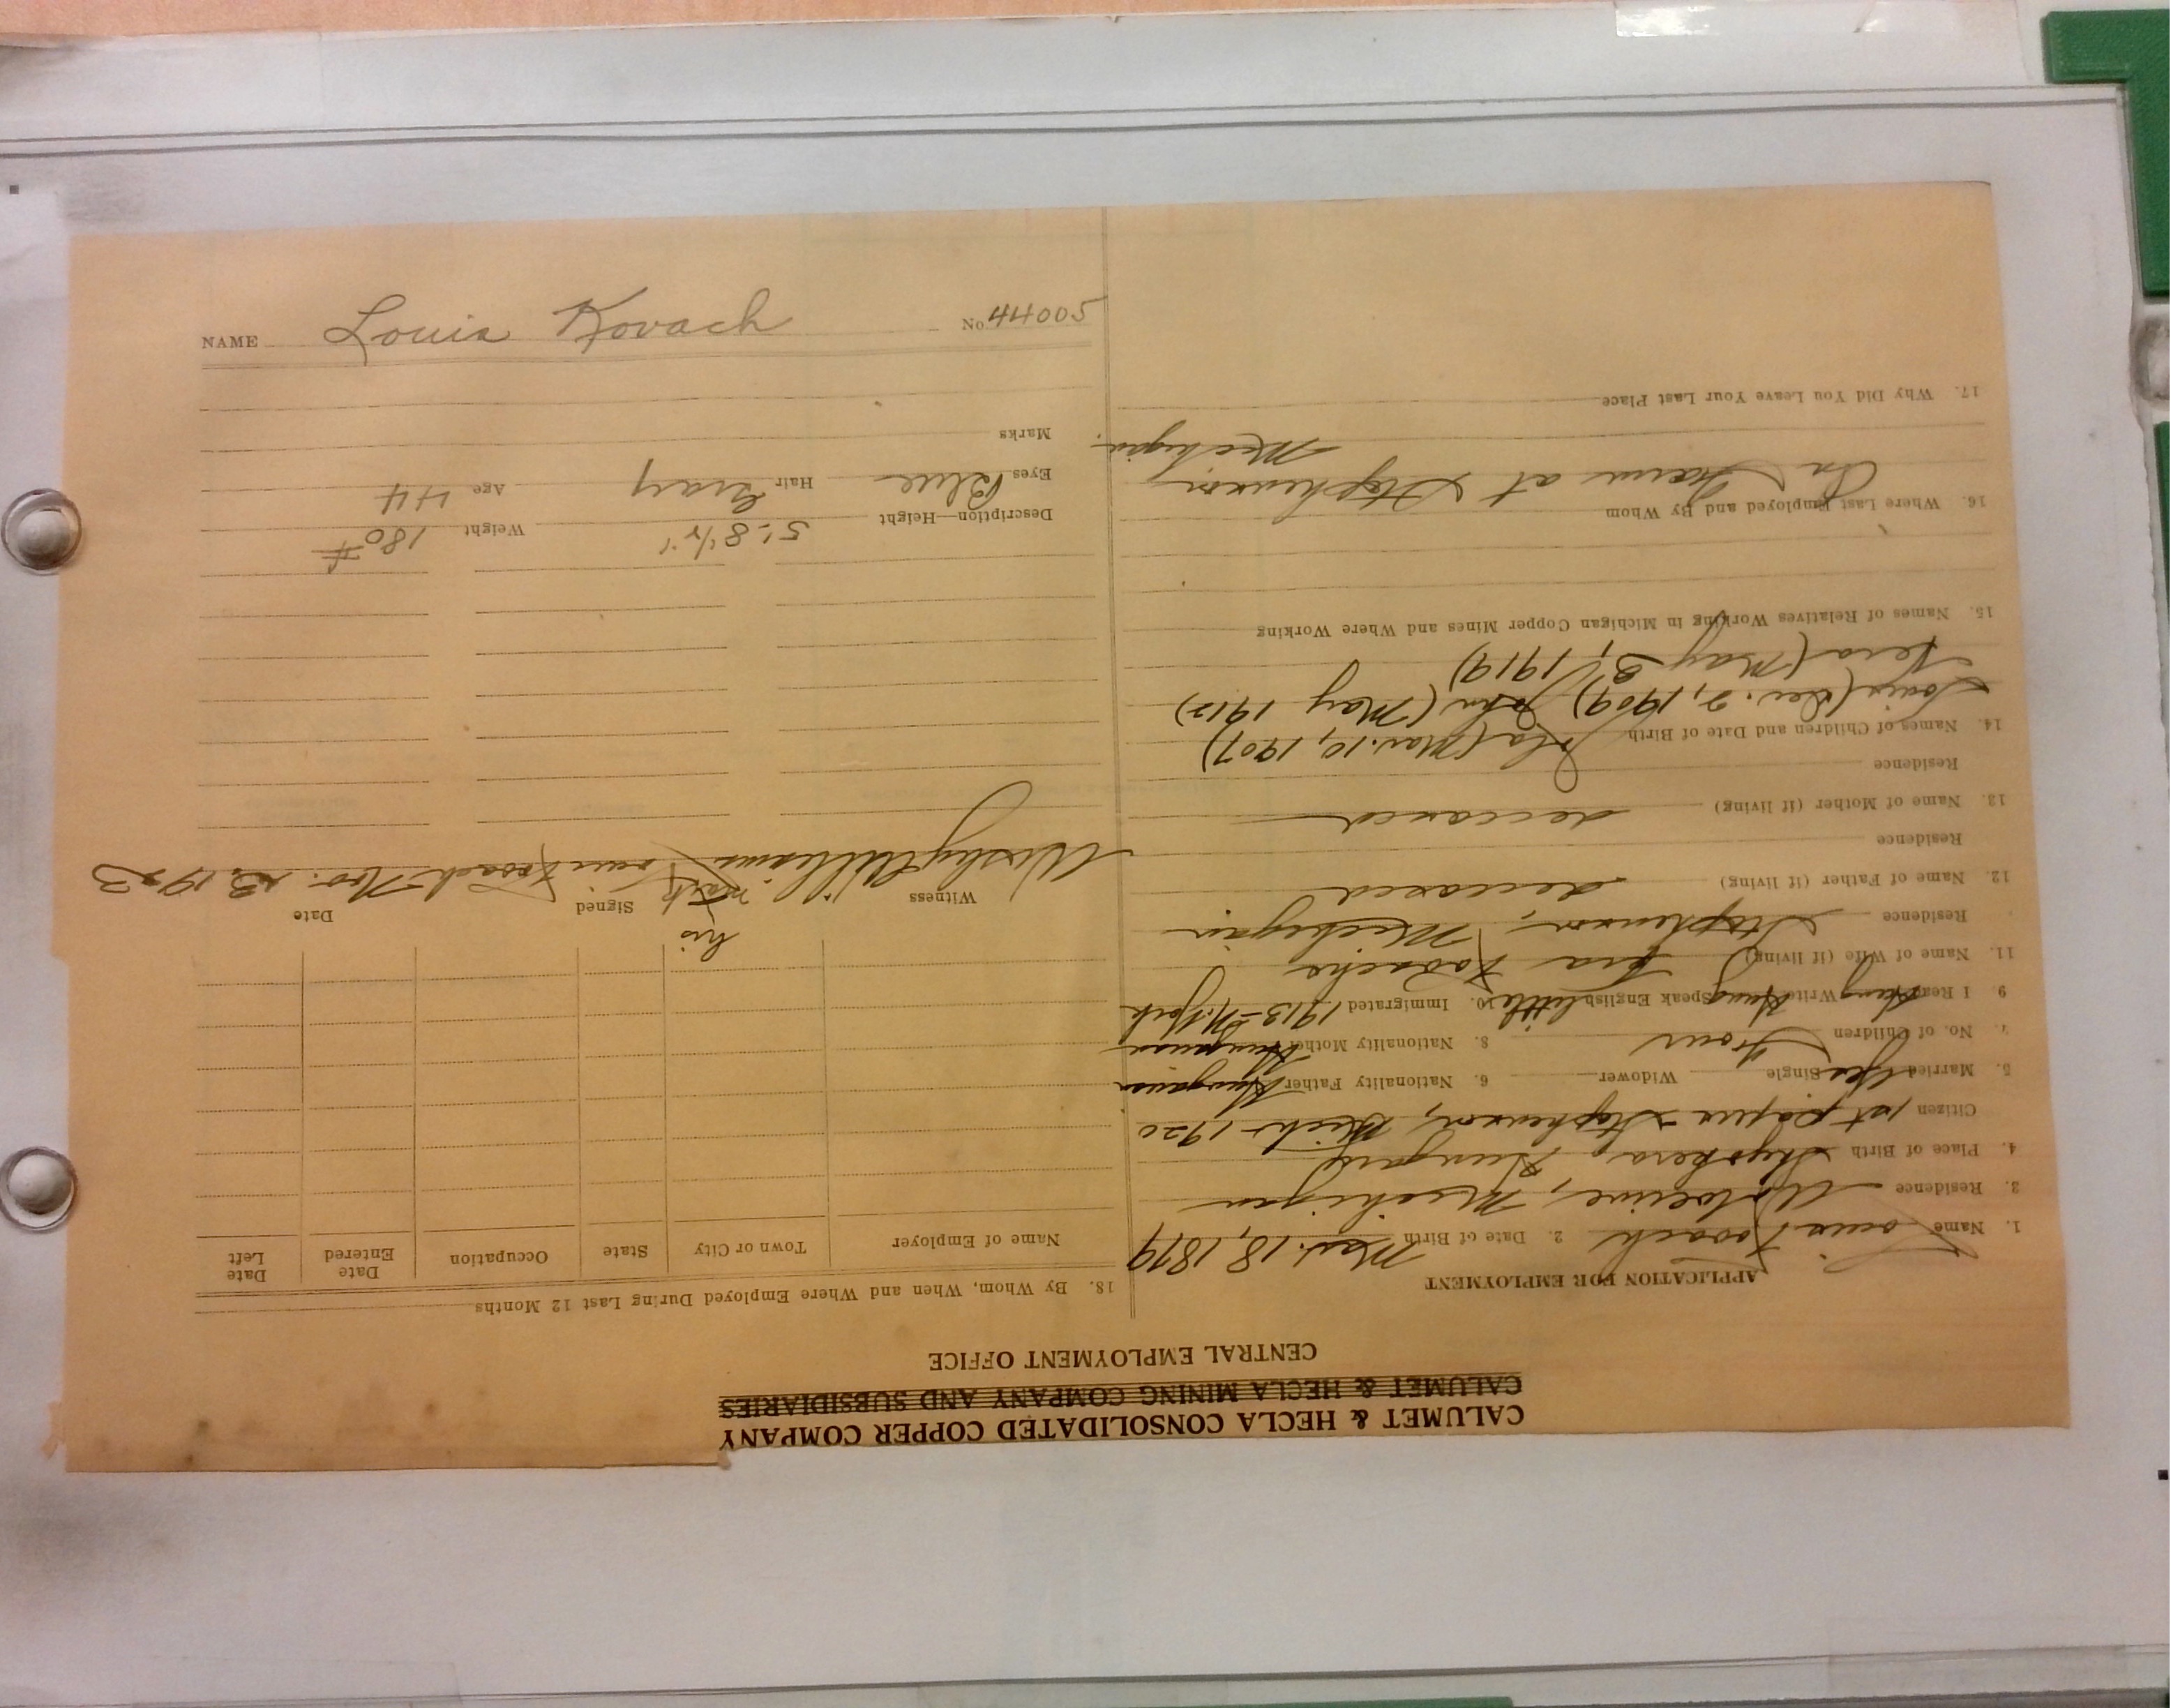 NAME Louis Kovach No 44005
CALUMET & HECLA CONSOLIDATED COPPER COMPANY
CALUMET & HECLA MINING COMPANY AND SUBSIDIARIES
CENTRAL EMPLOYMENT OFFICE
APPLICATION FOR EMPLOYMENT
1. Name Louis Kovach 2. Date of Birth Mar. 18, 1879
3. Residence Wolverine, Michigan
4. Place of Birth Hungary
Citizen 1st paper Stephenson, Mich 1920
5. Married Yes Single Widower 6. Nationality Father Hungarian
7. No. of Children Four 8. Nationality Mother Hungarian
9. I Read Hung Write Hung Speak English little 10. Immigrated 1913-N. York
11. Name of Wife (if living) Kovach
Residence Stephenson, Michigan
12. Name of Father (if living) deceased
Residence
13. Name of Mother (if living) deceased
Residence
14. Names of Children and Date of Birth (Mar. 10, 1907)
Louis (Dec. 2, 1909) John (May 1912)
Vera (May 3, 1919)
15. Names of Relatives Working in Michigan Copper Mines and Where Working
16. Where Last Employed and By Whom
On Farm at Stephenson
Michigan.
17. Why Did You Leave Your Last Place
18. By Whom, When and Where Employed During Last 12 Months
Name of Employer Town or City State Occupation Date Entered Date Left
his
Witness mark Signed Date
Wesley Williams Louis Kovach Nov. 23, 1923
Description—Height 5'-8 1/2" Weight 180 #
Eyes Blue Hair Gray Age 44
Marks